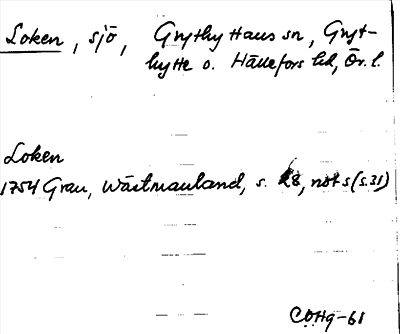 Loken, sjö, Grythyttans sn, Gryt-
hytte o. Hällefors hd, Ör. l.
Loken
1754 Grau, Wästmanland, s. 28, not s (s. 31)
COHg-61